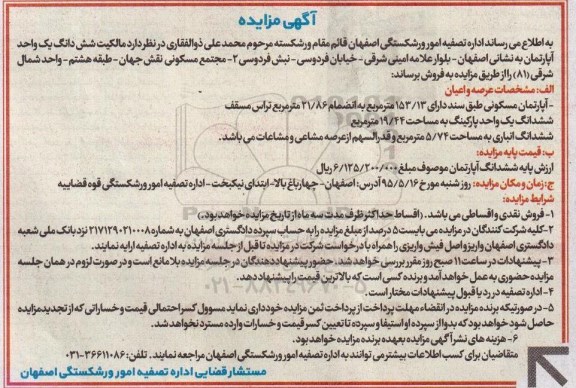 آگهی مزایده
به اطلاع می رساند اداره تصفیه امور ورشکستگی اصفهان قائم مقام ورشکسته مرحوم محمد علی ذوالفقاری در نظر دارد مالکیت شش دانگ یک واحد
آپارتمان به نشانی اصفهان - بلوار علامه امینی شرقی - خیابان فردوسی - نبش فردوسی ۲ - مجتمع مسکونی نقش جهان - طبقه هشتم - واحد شمال
شرقی (۸۱) را از طریق مزایده به فروش برساند:
الف: مشخصات عرصه و اعیان
- آپارتمان مسکونی طبق سند دارای ۱۵۳/۱۳ مترمربع به انضمام ۲۱/۸۶ مترمربع تراس مسقف
ششدانگ یک واحد پارکینگ به مساحت ۱۹/۴۴ مترمربع
ششدانگ انباری به مساحت ۵/۷۴ مترمربع و قدرالسهم از عرصه مشاعی و مشاعات می باشد.
ب: قیمت پایه مزایده:
ارزش پایه ششدانگ آپارتمان موصوف مبلغ ۶/۱۲۵/۲۰۰/۰۰۰ ریال
ج: زمان و مکان مزایده: روز شنبه مورخ ۹۵/۵/۱۶ آدرس: اصفهان - چهارباغ بالا - ابتدای نیکبخت - اداره تصفیه امور ورشکستگی قوه قضاییه
شرایط مزایده:
۱- فروش نقدی و اقساطی می باشد. (اقساط حداکثر ظرف مدت سه ماه از تاریخ مزایده خواهد بود.
۲- کلیه شرکت کنندگان در مزایده می بایست ۵ درصد از مبلغ مزایده را به حساب سپرده دادگستری اصفهان به شماره ۲۱۷۱۲۹۰۲۱۰۰۰۸ نزد بانک ملی شعبه
دادگستری اصفهان واریز و اصل فیش واریزی را همراه با درخواست شرکت در مزایده تا قبل از جلسه مزایده به اداره تصفیه ارایه نمایند.
۳- پیشنهادات در ساعت ۱۱ صبح روز مقرر بررسی خواهد شد. حضور پیشنهاد دهندگان در جلسه مزایده بلامانع است و در صورت لزوم در همان جلسه
مزایده حضوری به عمل خواهد آمد و برنده کسی است که بالاترین قیمت را پیشنهاد دهد.
۴- اداره تصفیه در رد یا قبول پیشنهادات مختار است.
۵- در صورتیکه برنده مزایده در انقضاء مهلت پرداخت از پرداخت ثمن مزایده خودداری نماید مسوول کسر احتمالی قیمت و خساراتی که از تجدید مزایده
حاصل شود خواهد بود که بدوا از سپرده او استیفا و سپرده تا تعیین کسر قیمت و خسارات وارده مسترد نخواهد شد.
۶- هزینه های نشر آگهی مزایده بعهده برنده مزایده خواهد بود.
متقاضیان برای کسب اطلاعات بیشتر می توانند به اداره تصفیه امور ورشکستگی اصفهان مراجعه نمایند. تلفن: ۳۶۶۱۱۰۸۶-۰۳۱
مستشار قضایی اداره تصفیه امور ورشکستگی اصفهان